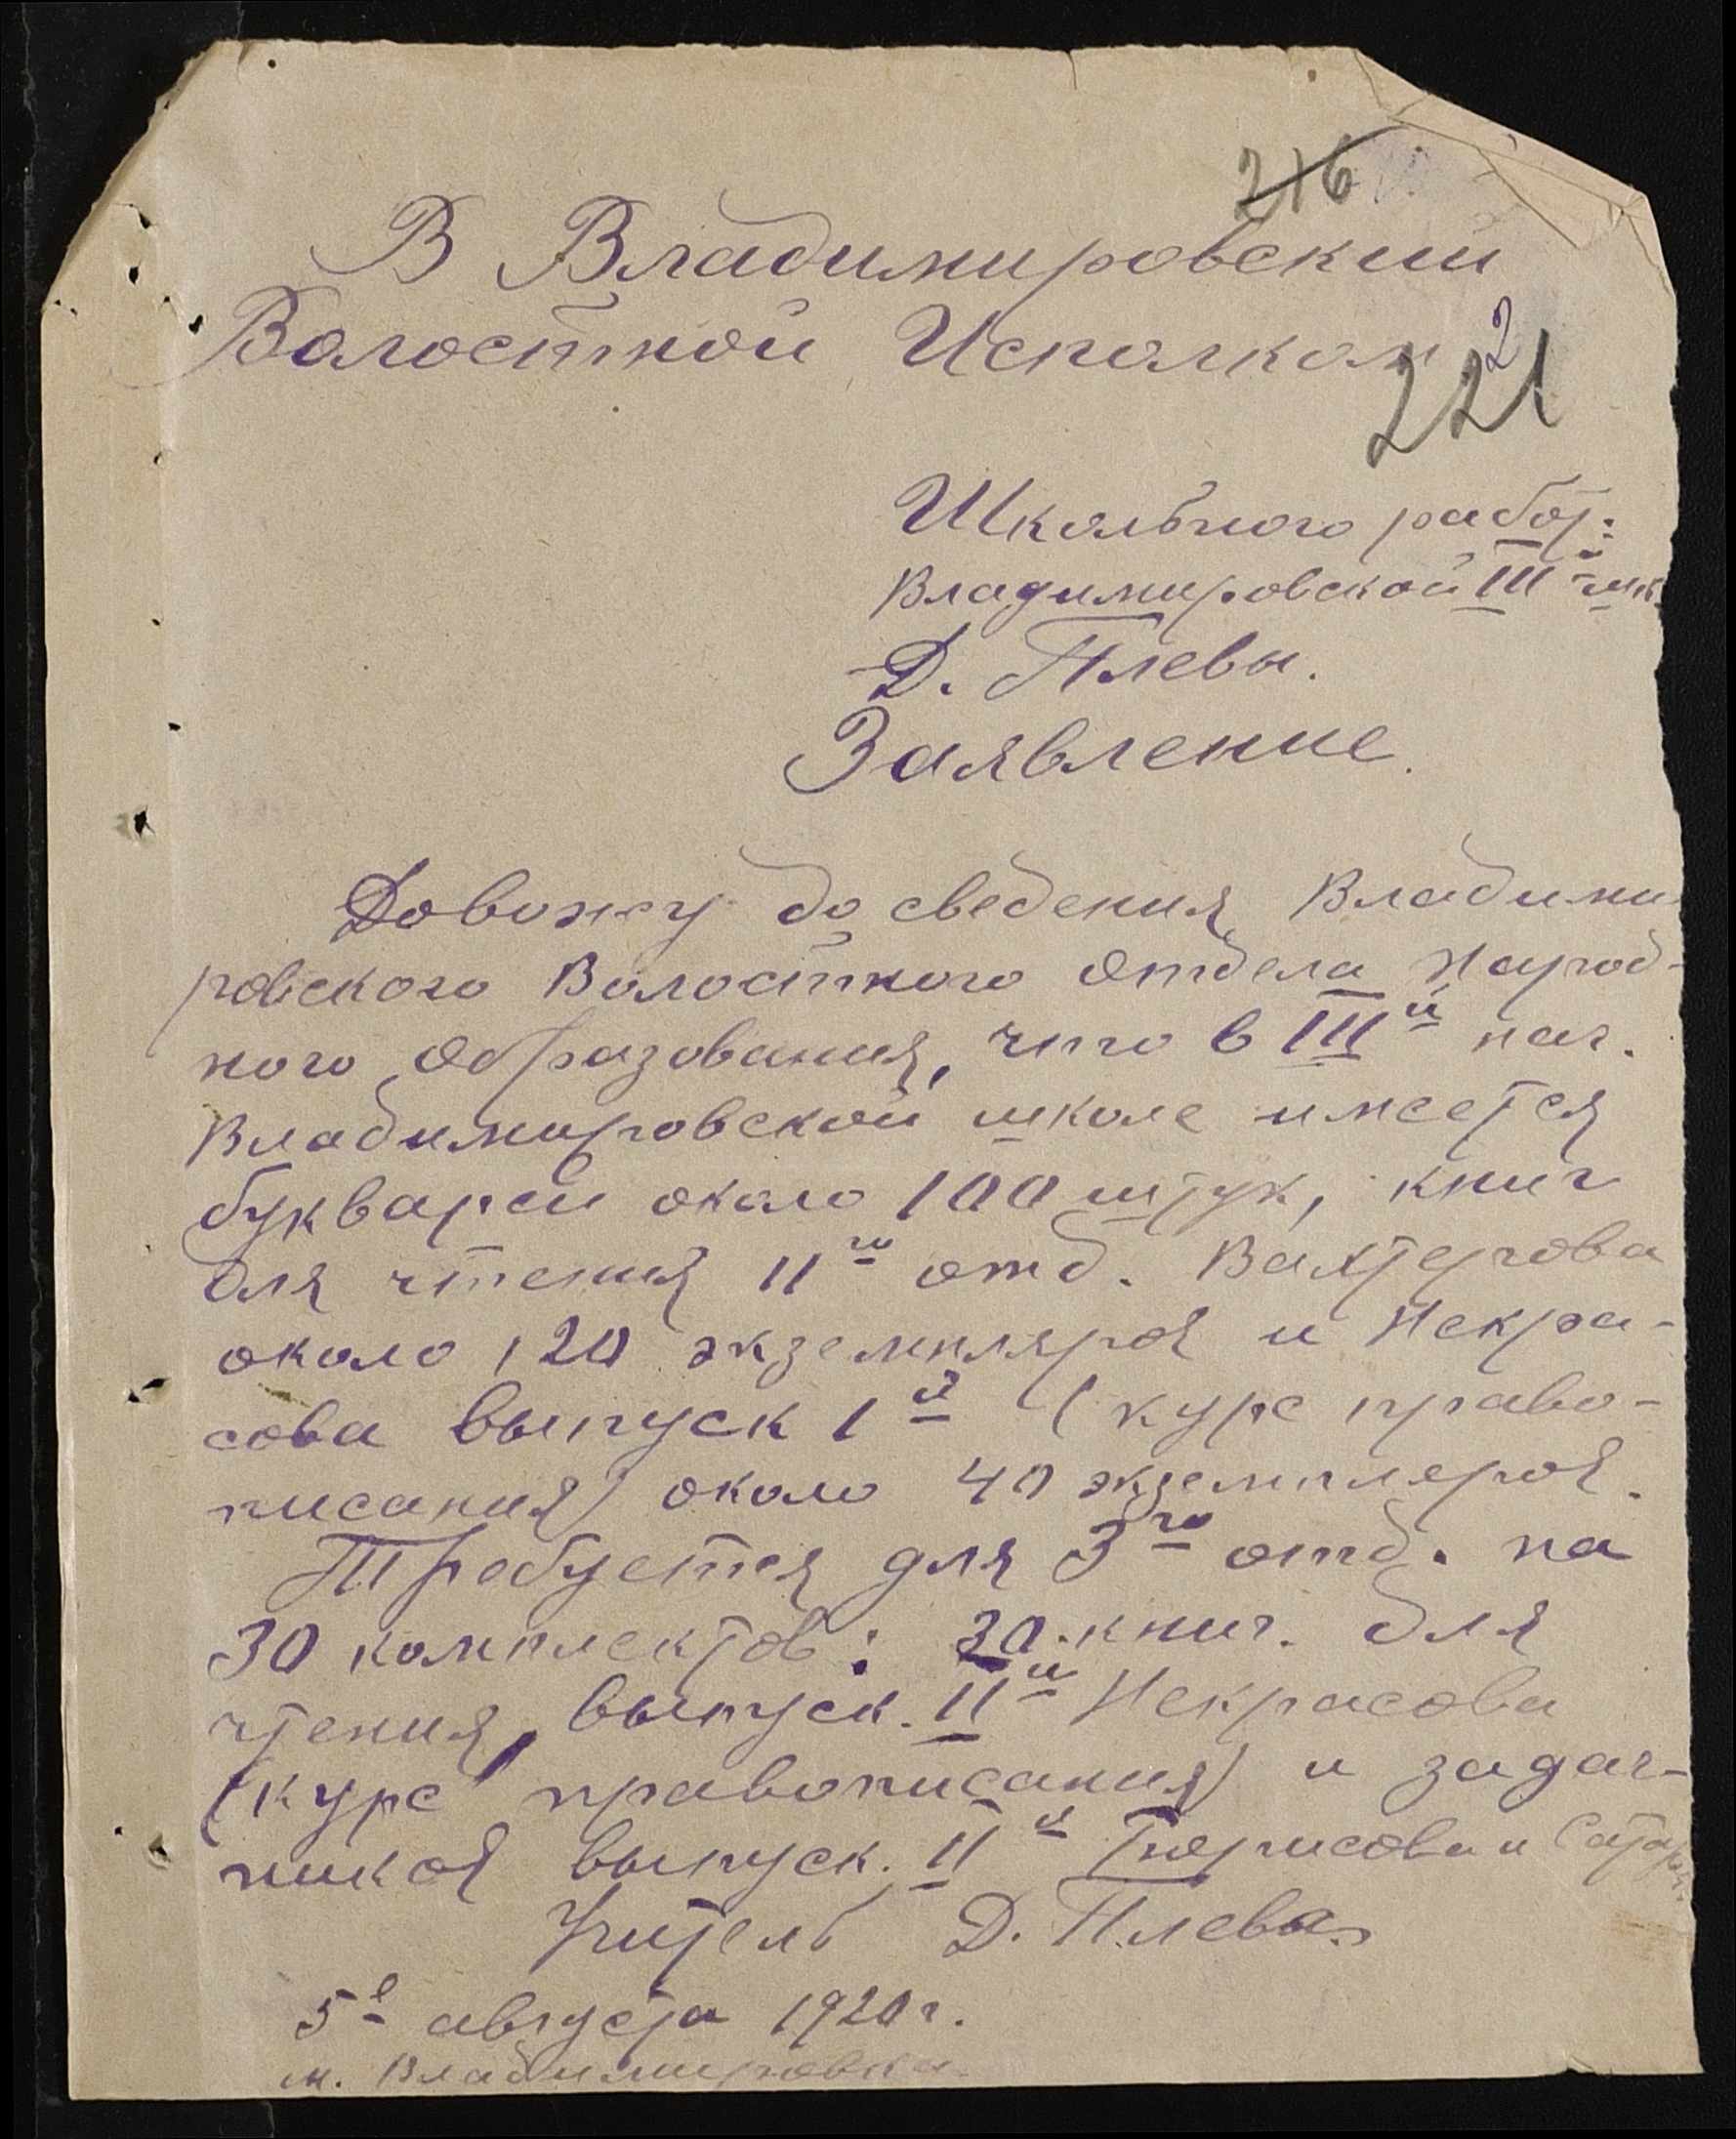 216
В Владимировский
Волостной Исполком
2
221
Школьного работ.
Владимировской III й шк.
Д. Плевы.
Заявление.
Довожу до сведения Владими-
ровского Волостного Отдела Народ-
ного Образования, что в III й нач.
Владимировской школе имеется
букварей около 100 штук, книг
для чтения II го отд. Вахтерова
около 120 экземпляров и Некра-
сова выпуск 1 й (курс право-
писания) около 40 экземплеров.
Требуется для 3 го отд. на
30 комплектов: 30 книг. для
чтения, выпуск. II й Некрасова
(курс правописания) и задач-
ников выпуск. II й и
Учитель Д. Плева
5 е августа 1920 г.
м. Владимировка